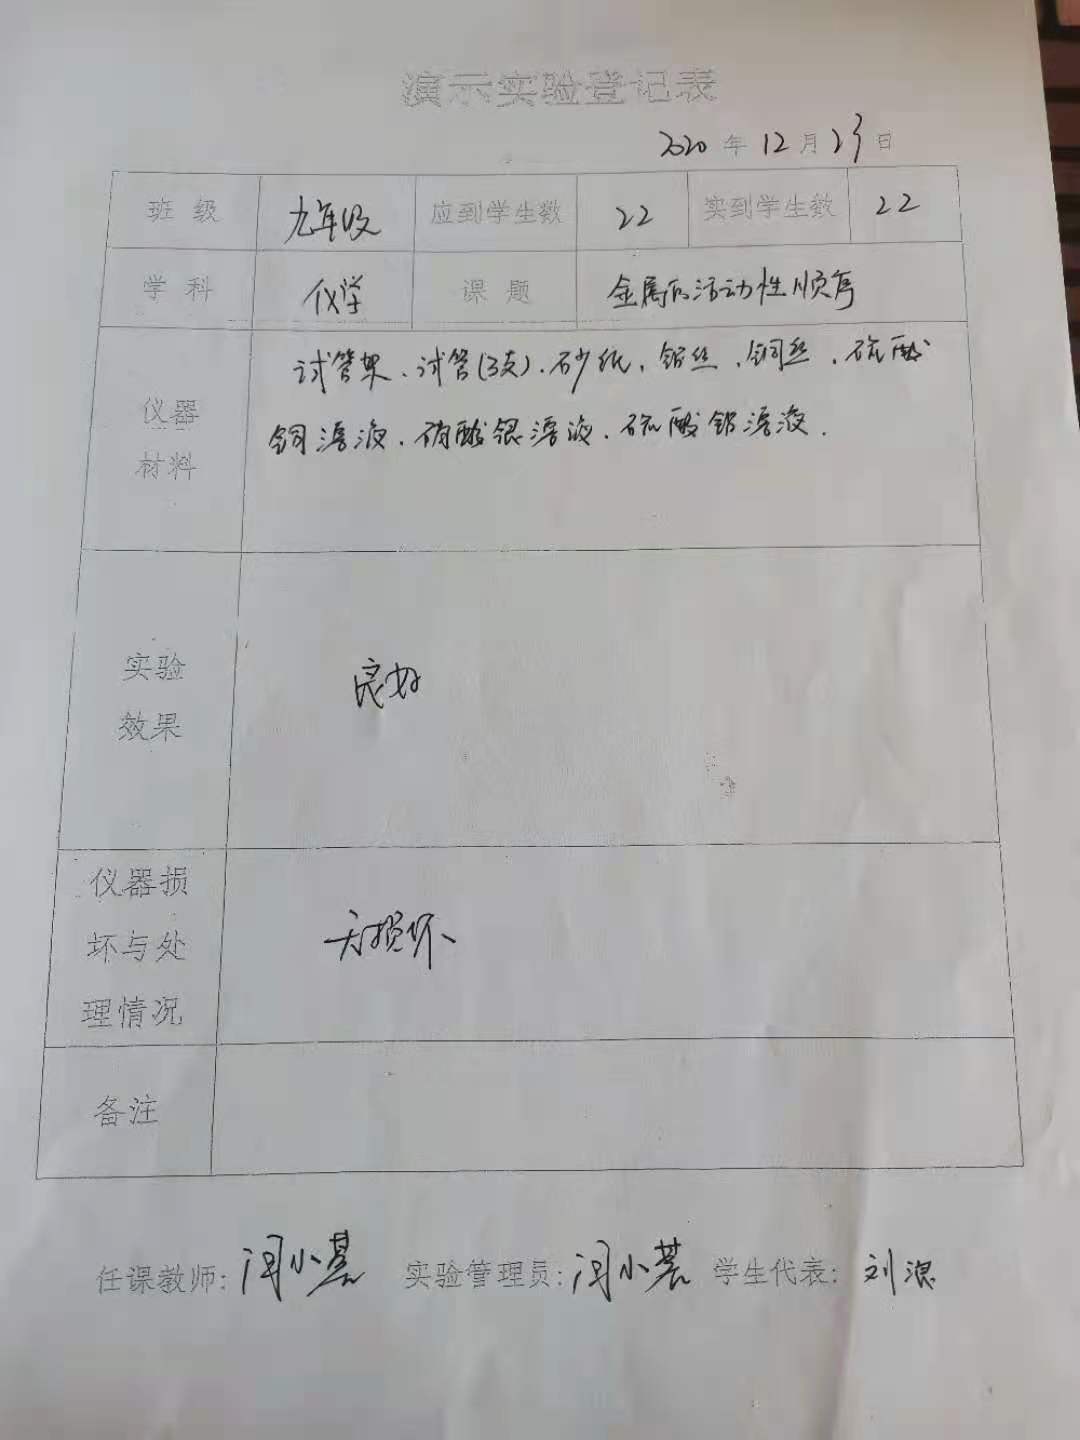 演示实验登记表
2020 年 12 月 23 日
班 级 九年级 应到学生数 22 实到学生数 22
学 科 化学 课 题 金属的活动性顺序
试管架、试管(3支)、砂纸、铝丝、铜丝、硫酸
仪器
铜溶液、硝酸银溶液、硫酸铝溶液.
材料
实验
良好
效果
仪器损
坏与处 无损坏
理情况
备注
任课教师: 小 实验管理员: 小 学生代表: 刘